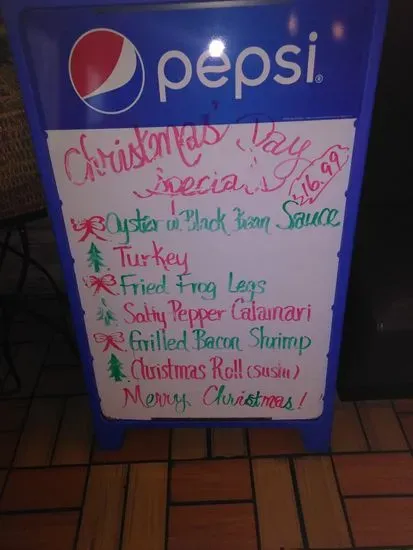 pepsi®
Christmas Day
Specials
16.99
Oyster w Black Bean Sauce
Turkey
Fried Frog Legs
Salty Pepper Calamari
Grilled Bacon Shrimp
Christmas Roll (sushi)
Merry Christmas!